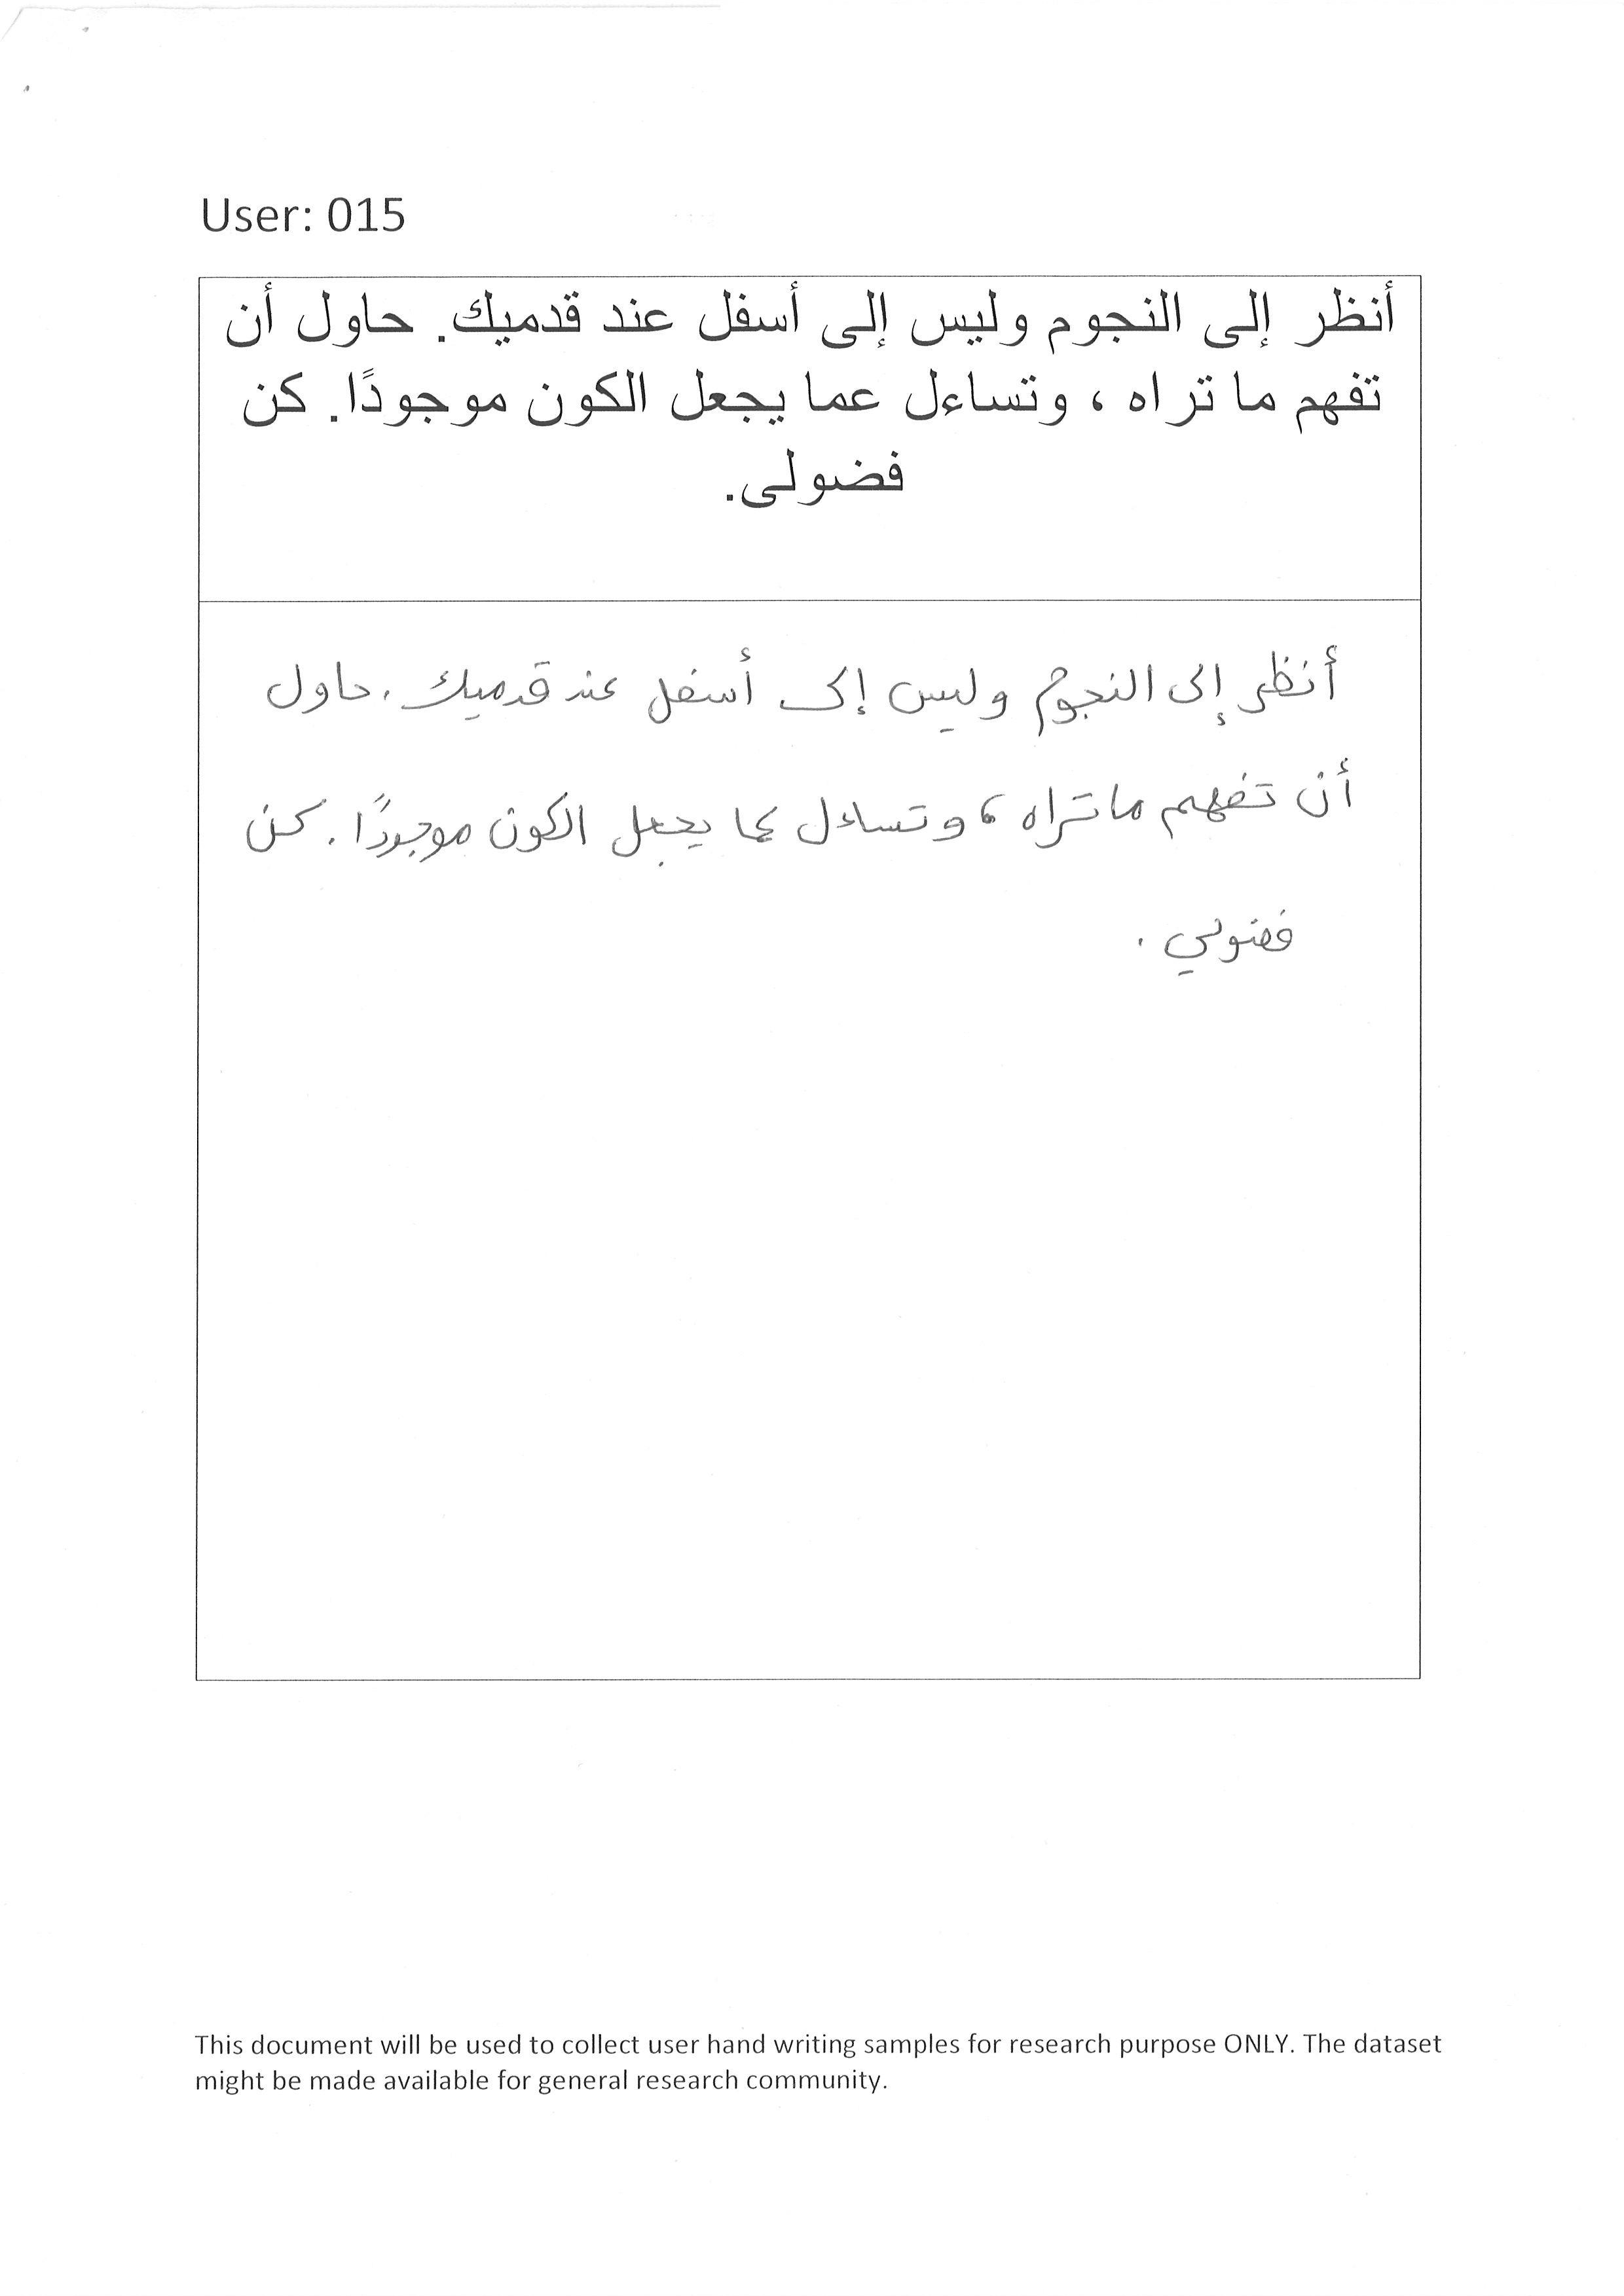 User: 015
أنظر إلى النجوم وليس إلى أسفل عند قدميك. حاول أن
تفهم ما تراه ، وتساءل عما يجعل الكون موجودًا. كن
فضولى.
أنظر إلى النجوم وليس إلى أسفل عند قدميك . حاول
أن تفهم ما تراه ، وتساءل عما يجعل الكون موجودًا . كن
فضولي .
This document will be used to collect user hand writing samples for research purpose ONLY. The dataset
might be made available for general research community.